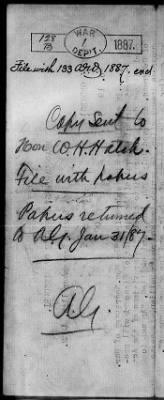 128
B
WAR
1
DEPT.
1887.
File with 133 1887. end
Copy Sent to
Hon W. H. Hatch.
File with papers
Papers returned
to A.G. Jan 31/87.
A.G.